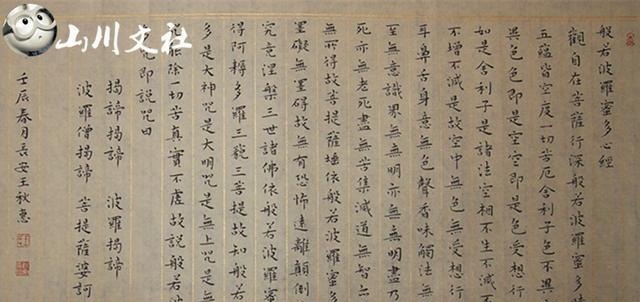 山川文社
般若波羅蜜多心經
觀自在菩薩行深般若波羅蜜多時
五蘊皆空度一切苦厄舍利子色不異
異色色即是空空即是色受想行
如是舍利子是諸法空相不生不滅不
不增不減是故空中無色無受想行
耳鼻舌身意無色聲香味觸法無
至無意識界無無明亦無無明盡乃
死亦無老死盡無苦集滅道無智亦
無所得故菩提薩埵依般若波羅蜜多
罣礙無罣礙故無有恐怖遠離顛倒
究竟涅槃三世諸佛依般若波羅蜜多
得阿耨多羅三藐三菩提故知般若
多是大神咒是大明咒是無上咒是無
能除一切苦真實不虛故說般若波
咒即說咒曰
揭諦揭諦 波羅揭諦
波羅僧揭諦 菩提薩婆訶
壬辰春月長安王秋惠